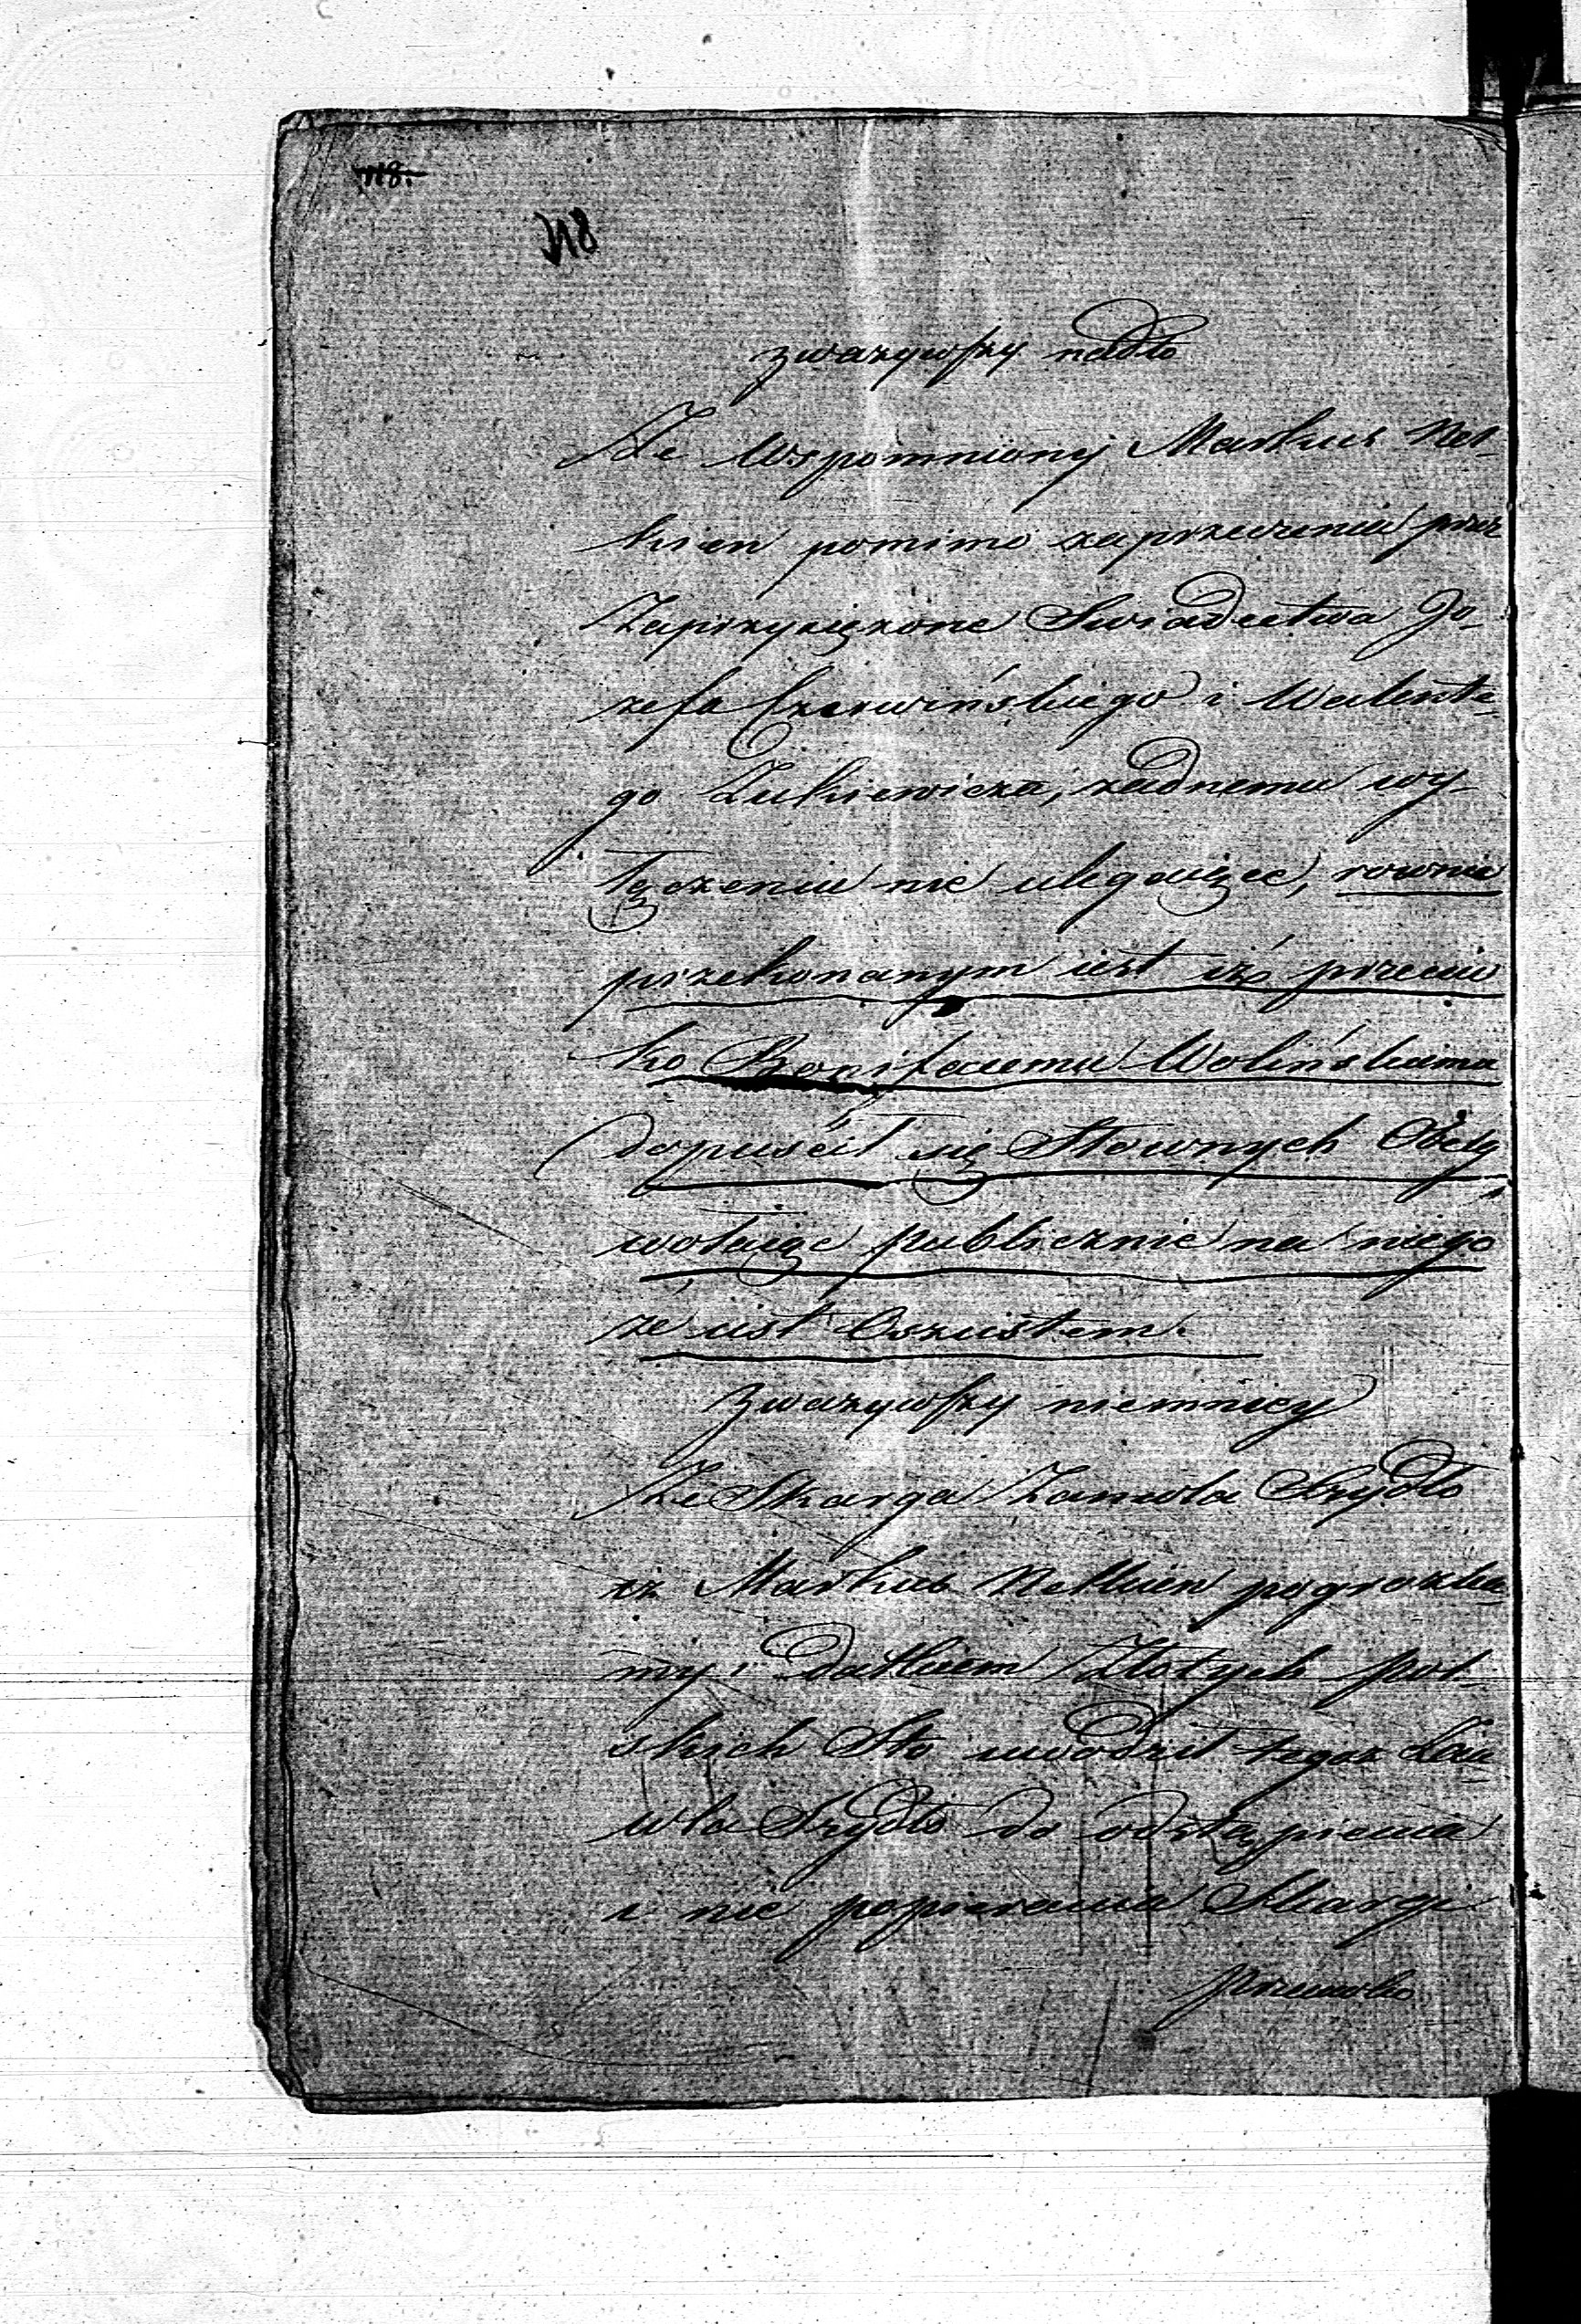 118.
118
zwazywszy nadto
Ze Wspomniony Markus Net-
kien pomimo zaprzeczenia przez
Zaprzysięzone Swiadectwa Jo-
zefa Czerwińskiego i Walente-
go Zukiewicza, zadnemu wy-
łączeniu nie ulegaiące, rownie
przekonanym iest iż przeciw
ko Bonifacemu Wolińskiemu
dopuścił się Słownych Obelg
wołaiąc publicznie na niego
ze iest Oszustem.
zwazywszy niemniey
Ze Skarga Zamela Szydło
iz Markus Netkien pogrozka-
my i datkiem Złotych pol-
skich Sto uwodził tegoz
Szydło do odstąpienia
i nie popierania Skargi
przeciwko